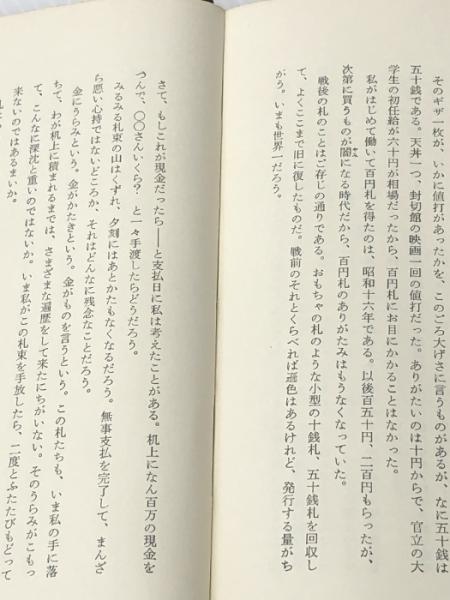 そのギザ一枚が、いかに値打があったかを、このごろ大げさに言うものがあるが、なに五十銭は
五十銭である。天丼一つ、封切館の映画一回の値打だった。ありがたいのは十円からで、官立の大
学生の初任給が六十円が相場だったから、百円札にお目にかかることはなかった。
私がはじめて働いて百円札を得たのは、昭和十六年である。以後百五十円、二百円もらったが、
次第に買うものが闇になる時代だから、百円札のありがたみはもうなくなっていた。
戦後の札のことはご存じの通りである。おもちゃの札のような小型の十銭札、五十銭札を回収し
て、よくここまで旧に復したものだ。戦前のそれとくらべれば遜色はあるけれど、発行する量がち
がう。いまも世界一だろう。
さて、もしこれが現金だったら――と支払日に私は考えたことがある。机上になん百万の現金を
つんで、〇〇さんいくら?と一々手渡したらどうだろう。
みるみる札束の山はくずれ、夕刻にはあとかたもなくなるだろう。無事支払を完了して、まんざ
ら悪い心持ではないどころか、それはどんなに残念なことだろう。
金にうらみという。金がかたきという。金がものを言うという。この札たちも、いま私の手に落
ちて、わが机上に積まれるまでは、さまざまな遍歴をして来たにちがいない。そのうらみがこもっ
て、こんなに深沈と重いのではないか。いま私がこの札束を手放したら、二度とふたたびもどって
来ないのではあるまいか。